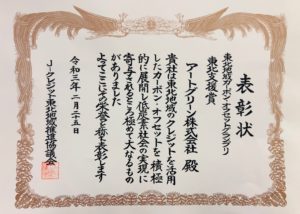 表彰状
東北地域カーボン・オフセットグランプリ
東北支援賞
アートグリーン株式会社 殿
貴社は東北地域のクレジットを活用
したカーボン・オフセットを積極
的に展開し低炭素社会の実現に
寄与されるところ極めて大なるもの
がありました
よってここにその栄誉を称え表彰します
令和三年二月二十五日
J-クレジット東北地域推進協議会